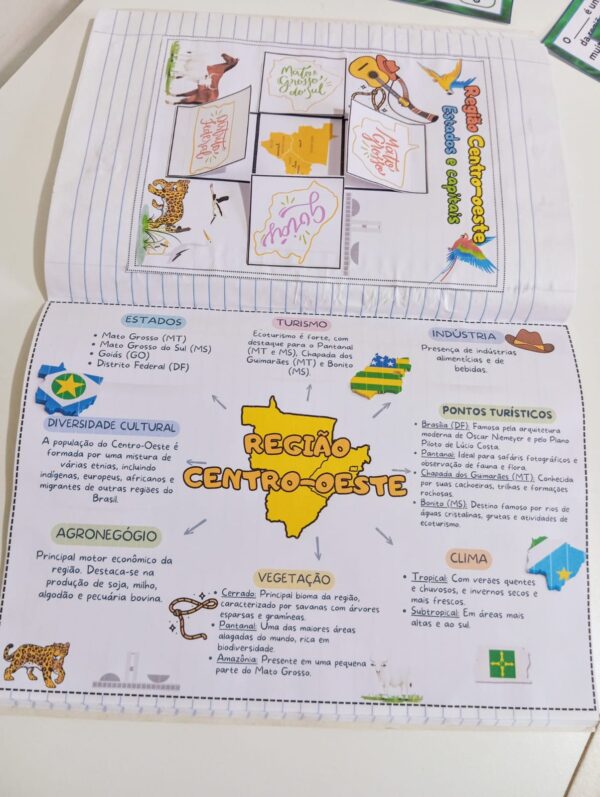 O ___ é um
Região Centro-oeste
Estados e capitais
Mato
Grosso
do sul
Distrito
Federal
Mato
Grosso
Goiás
ESTADOS
• Mato Grosso (MT)
• Mato Grosso do Sul (MS)
• Goiás (GO)
• Distrito Federal (DF)
TURISMO
Ecoturismo é forte, com
destaque para o Pantanal
(MT e MS), Chapada dos
Guimarães (MT) e Bonito
(MS).
INDÚSTRIA
Presença de indústrias
alimentícias e de
bebidas.
DIVERSIDADE CULTURAL
A população do Centro-Oeste é
formada por uma mistura de
várias etnias, incluindo
indígenas, europeus, africanos e
migrantes de outras regiões do
Brasil.
REGIÃO
CENTRO-OESTE
PONTOS TURÍSTICOS
• Brasília (DF): Famosa pela arquitetura
moderna de Oscar Niemeyer e pelo Plano
Piloto de Lúcio Costa.
• Pantanal: Ideal para safáris fotográficos e
observação de fauna e flora.
• Chapada dos Guimarães (MT): Conhecida
por suas cachoeiras, trilhas e formações
rochosas.
• Bonito (MS): Destino famoso por rios de
águas cristalinas, grutas e atividades de
ecoturismo.
AGRONEGÓGIO
Principal motor econômico da
região. Destaca-se na
produção de soja, milho,
algodão e pecuária bovina.
VEGETAÇÃO
• Cerrado: Principal bioma da região,
caracterizado por savanas com árvores
esparsas e gramíneas.
• Pantanal: Uma das maiores áreas
alagadas do mundo, rica em
biodiversidade.
• Amazônia: Presente em uma pequena
parte do Mato Grosso.
CLIMA
• Tropical: Com verões quentes
e chuvosos, e invernos secos e
mais frescos.
• Subtropical: Em áreas mais
altas e ao sul.